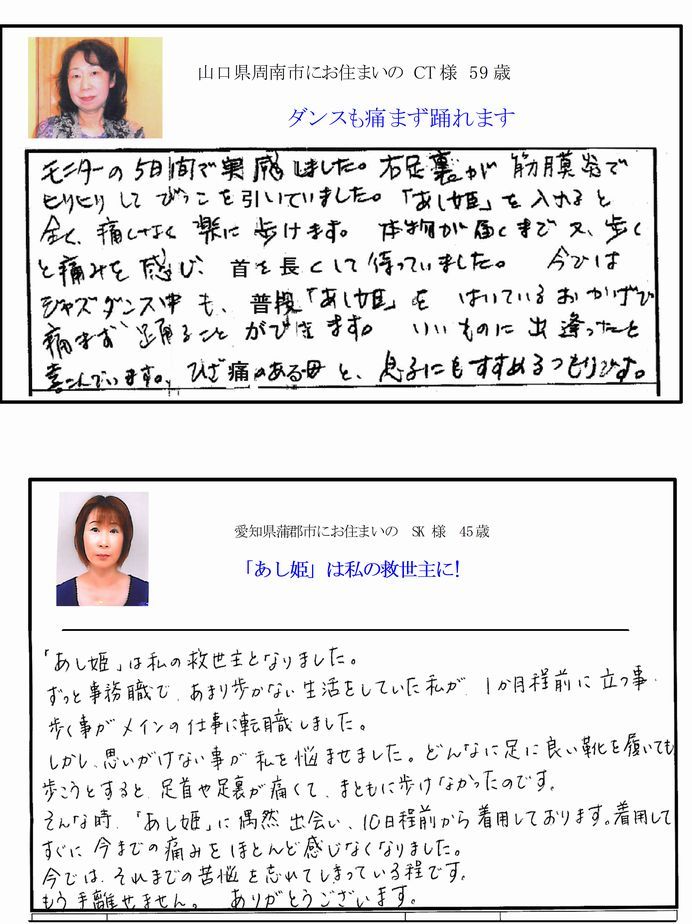 山口県周南市にお住まいの CT様 59歳
ダンスも痛まず踊れます
モニターの5日間で実感しました。右足裏が筋膜炎で
ヒリヒリしてびっこを引いていました。「あし姫」を入れると
全く、痛くなく楽に歩けます。本物が届くまで又、歩く
と痛みを感じ、首を長くして待っていました。今では
ジャズダンス中も、普段「あし姫」をはいているおかげで
痛まず踊ることができます。いいものに出逢ったと
喜んでいます。ひざ痛のある母と、息子にもすすめるつもりです。
愛知県蒲郡市にお住まいの SK様 45歳
「あし姫」は私の救世主に!
「あし姫」は私の救世主となりました。
ずっと事務職で、あまり歩かない生活をしていた私が、1か月程前に立つ事・
歩く事がメインの仕事に転職しました。
しかし、思いがけない事が私を悩ませました。どんなに足に良い靴を履いても
歩こうとすると、足首や足裏が痛くて、まともに歩けなかったのです。
そんな時、「あし姫」に偶然出会い、10日程前から着用しております。着用して
すぐに今までの痛みをほとんど感じなくなりました。
今では、それまでの苦悩を忘れてしまっている程です。
もう手離せません。ありがとうございます。